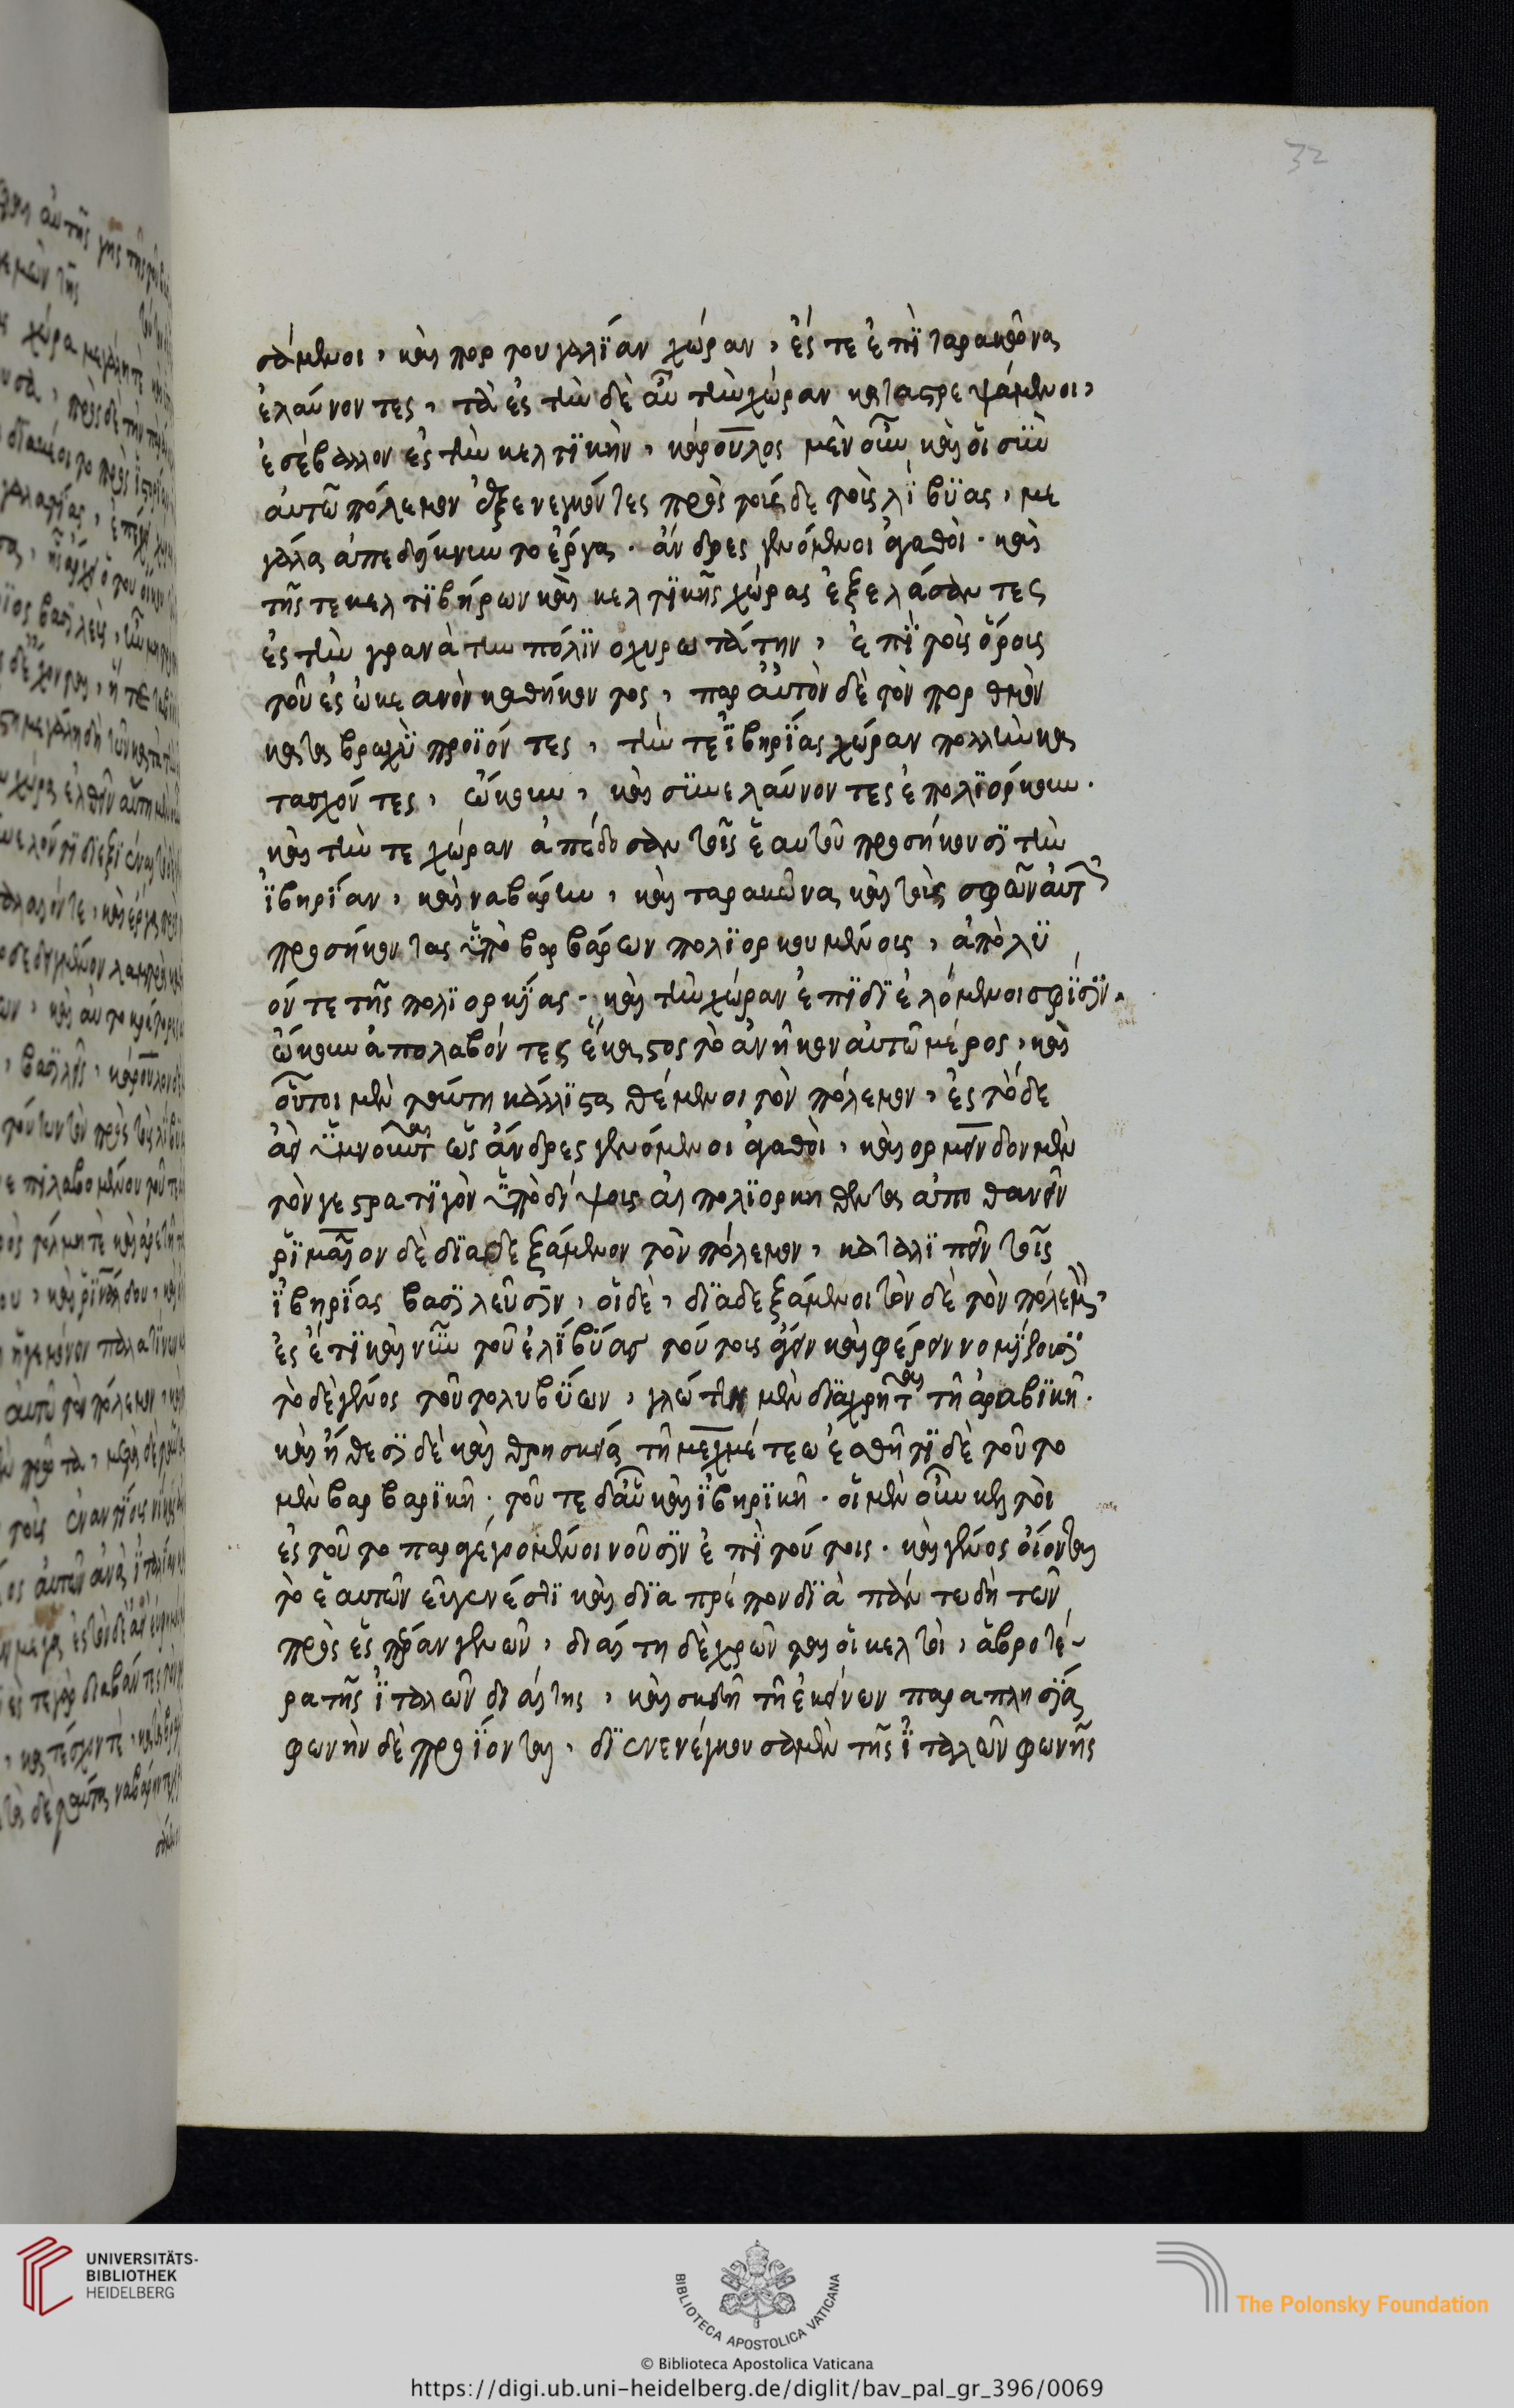 32
σάμενοι, καὶ πορτουγαλίαν χώραν, ἔς τε ἐπὶ ταρακῶνα
ἐλαύνοντες, τὰ ἐς τὴν δὲ αὖ τὴν χώραν καταστρεψάμενοι,
ἐσέβαλλον ἐς τὴν κελτικήν, κάρουλος μὲν οὖν καὶ οἱ σὺν
αὐτῶ πόλεμον ἐξενεγκόντες πρὸς τούσδε τοὺς λίβυας, με
γάλα ἀπεδείκνυντο ἔργα. ἄνδρες γενόμενοι ἀγαθοί. καὶ
τῆς τε κελτιβήρων καὶ κελτικῆς χώρας ἐξελάσαντες
ἐς τὴν γρανάτην πόλιν ὀχυρωτάτην, ἐπὶ τοῖς ὄροις
τοῦ ἐς ὠκεανὸν καθήκοντος, παρ αὐτὸν δὲ τὸν πορθμὸν
κατα βραχὺ προϊόντες, τήν τε ἰβηρίας χώραν πολλὴν κα
τασχόντες, ὤκουν, καὶ συνελαύνοντες ἐπολιόρκουν.
καὶ τήν τε χώραν ἀπέδοσαν τοῖς ἑαυτοῦ προσήκουσι τὴν
ἰβηρίαν, καὶ ναβάρην, καὶ ταρακῶνα καὶ τοὺς σφῶν αὐτ
προσήκοντας ὑπὸ βαρβάρων πολιορκουμένους, ἀπόλυ
όν τε τῆς πολιορκίας. καὶ τὴν χώραν ἐπιδιελόμενοι σφίσιν.
ὤκουν ἀπολαβόντες ἕκαστος τὸ ἀνῆκον αὐτῶ μέρος, καὶ
οὗτοι μὲν ταύτη κάλλιστα θέμενοι τὸν πόλεμον, ἐς τόδε
ἀεὶ ὑμνοῦνται ὡς ἄνδρες γενόμενοι ἀγαθοί, καὶ ορμάνδον μὲν
τόν γε στρατηγὸν ὑπὸ δίψους αἱ πολιορκηθέντα ἀποθανεῖν
ῥιμαῖον δὲ διαδεξάμενον τὸν πόλεμον, καταλιπεῖν τοῖς
ἰβηρίας βασιλεῦσιν, οἱ δὲ, διαδεξάμενοι τόνδε τὸν πόλεμ
ἐς ἔτι καὶ νῦν τοῦ ἐλίβυας τούτους ἄγειν καὶ φέρειν νομίζουσι
τὸ δὲ γένος τοῦτο λυβύων, γλώττη μὲν διαχρῆται τῆ ἀραβικῆ.
καὶ ἤθεσι δὲ καὶ θρησκεία τῆ μεχμέτεω ἐσθῆτι δὲ τοῦτο
μὲν βαρβαρικῆ. τοῦτε δ αὖ καὶ ἰβηρικῆ. οἱ μὲν οὖν κελτοὶ
ἐς τοῦτο παραγεγρομένοι νοῦσιν ἐπὶ τούτοις. καὶ γένος οἴονται
τὸ ἑαυτῶν εὐγενές τι καὶ διαπρέπον διὰ πάντων δὴ τῶν
πρὸς ἑσπέραν γενῶν, διαίτη δὲ χρῶνται οἱ κελτοί, ἁβροτέ-
ρα τῆς ἰταλῶν διαίτης, καὶ σκευῆ τῆ ἐκείνων παραπλησία
φωνὴν δὲ προϊόνται, διενεγκοῦσαν μὲν τῆς ἰταλῶν φωνῆς
UNIVERSITÄTS-
BIBLIOTHEK
HEIDELBERG
BIBLIOTECA APOSTOLICA VATICANA
The Polonsky Foundation
© Biblioteca Apostolica Vaticana
https://digi.ub.uni-heidelberg.de/diglit/bav_pal_gr_396/0069